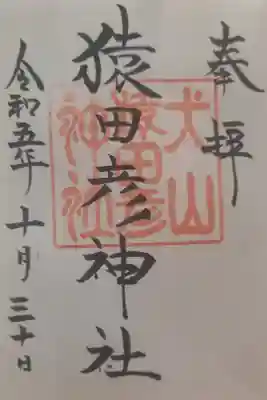 奉拝
猿田彦神社
犬山
猿田彦
神社
令和五年十月三十日